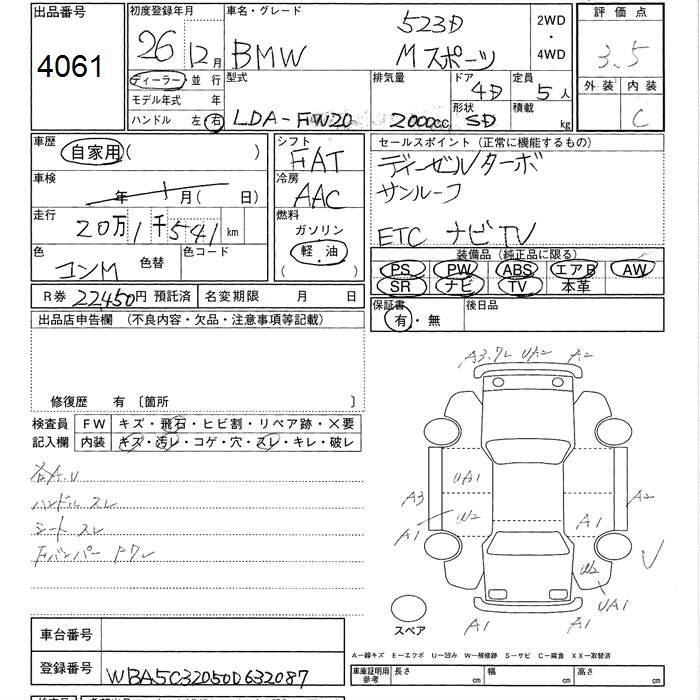 出品番号 4061
初度登録年月 26 12月
車名・グレード 523D
BMW Mスポーツ
2WD・4WD
評価点 3.5
外装 内装 C
ディーラー 並行
モデル年式 年
ハンドル 左 右
型式 LDA-FW20
排気量 2000cc
ドア 4D
形状 SD
定員 5人
積載 kg
車歴 自家用 ( )
車検 年 月( 日)
走行 20万1千541km
色 コンM 色替 色コード
シフト FAT
冷房 AAC
燃料 ガソリン
軽・油
( )
セールスポイント(正常に機能するもの)
ディーゼルターボ
サンルーフ
ETC ナビTV
装備品(純正品に限る)
PS PW ABS エアB AW
SR ナビ TV 本革
R券 22450円 預託済 名変期限 月 日
保証書 有・無 後日品
出品店申告欄 (不良内容・欠品・注意事項等記載)
修復歴 有 〔箇所 〕
検査員記入欄
FW キズ・飛石・ヒビ割・リペア跡・×要
内装 キズ・汚レ・コゲ・穴・スレ・キレ・破レ
A.U
ハンドル スレ
シート スレ
Fバンパー Pワレ
A3.ワレ UA2 A2
A3 UA1 A2
A1 W2 A1
W2
A1 A1 UA1
スペア
車台番号
登録番号 WBA5C32050D632087
A―線キズ E―エクボ U―凹み W―補修跡 S―サビ C―腐食 XX―取替済
車庫証明用参考 長さ cm 幅 cm 高さ cm